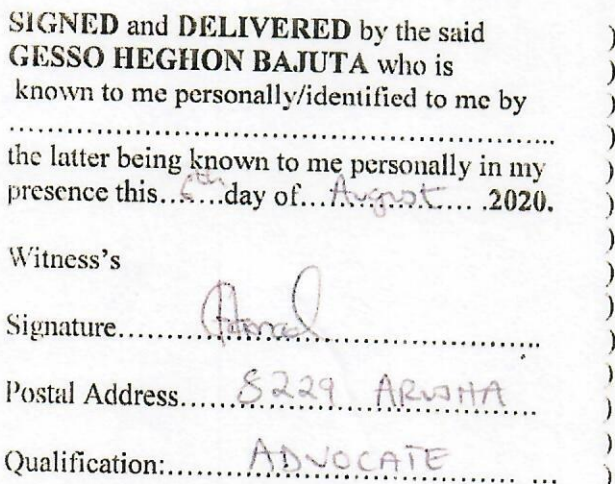 SIGNED and DELIVERED by the said )
GESSO HEGHON BAJUTA who is )
known to me personally/identified to me by )
........................................................ )
the latter being known to me personally in my )
presence this...6th...day of...August..... .2020. )
Witness's )
Signature.......................................... )
Postal Address......8229 ARUSHA.... )
Qualification:.........ADVOCATE........... ... )